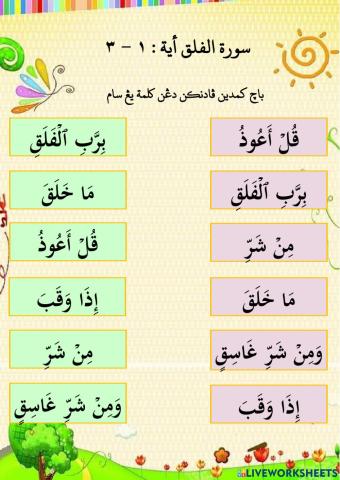 سورة الفلق أية : ١ - ٣
باچ كمدين ڤادنكن دڠن كلمة يڠ سام
قُلۡ أَعُوذُ
بِرَّبِ ٱلۡفَلَقِ
بِرَّبِ ٱلۡفَلَقِ
مَا خَلَقَ
مِنۡ شَرِّ
قُلۡ أَعُوذُ
مَا خَلَقَ
إِذَا وَقَبَ
وَمِنۡ شَرِّ غَاسِقٍ
مِنۡ شَرِّ
إِذَا وَقَبَ
وَمِنۡ شَرِّ غَاسِقٍ
LIVEWORKSHEETS